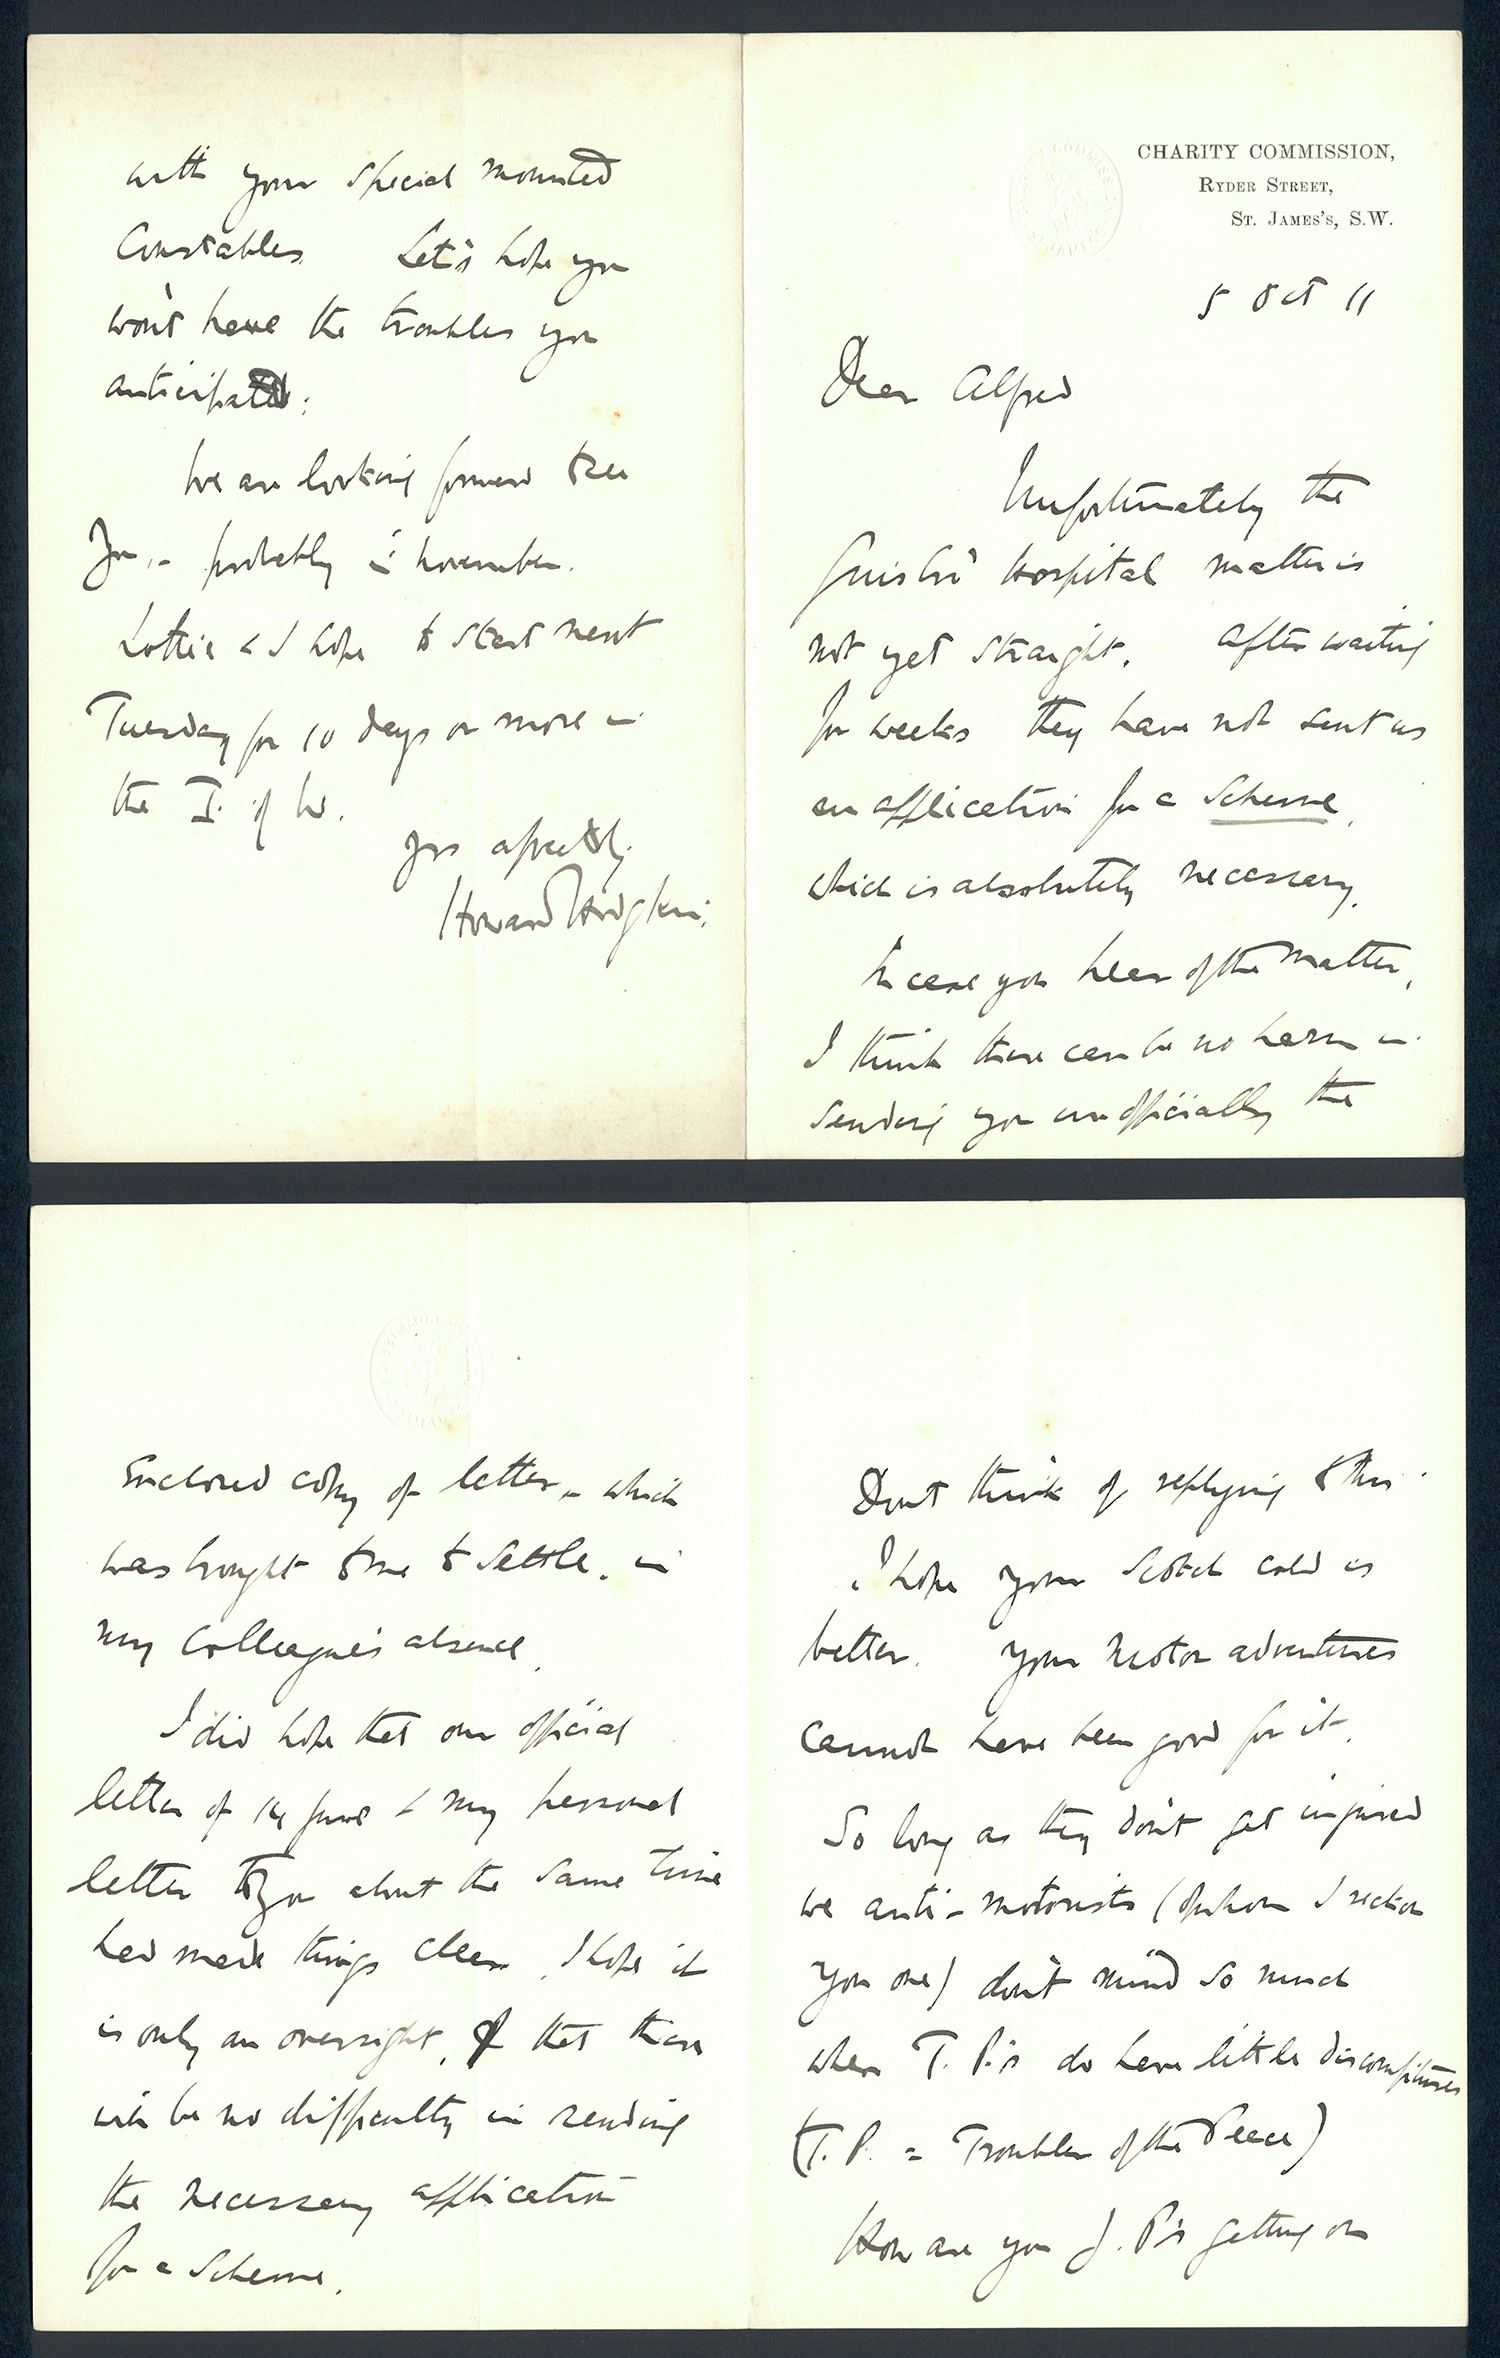 CHARITY COMMISSION,
RYDER STREET,
ST. JAMES'S, S.W.
5 Oct 11
Dear Alfred
Unfortunately the
Hospital matter is
not yet straight. After waiting
for weeks they have not sent us
an application for a Scheme,
which is absolutely necessary.
In case you hear of the matter,
I think there can be no harm in
sending you unofficially the
enclosed copy of letter, – which
was brought to me to settle, in
my colleague's absence.
I did hope that our official
letter of 14 June & my personal
letter to you about the same time
had made things clear. I hope it
is only an oversight, & that there
will be no difficulty in sending
the necessary application
for a Scheme.
Don't think of replying to this.
I hope your Scotch cold is
better. Your motor adventures
cannot have been good for it.
So long as they don't get injured
we anti-motorists (of whom I reckon
you one) don't mind so much
when T.P.'s do have little discomfitures
(T.P. = Troubler of the Peace)
How are you J.P.'s getting on
with your special mounted
Constables. Let's hope you
won't have the troubles you
anticipated.
We are looking forward to see
you, – probably in November.
Lottie & I hope to start next
Tuesday for 10 days or more in
the I. of W.
Yrs affectly.
Howard Hodgkin.